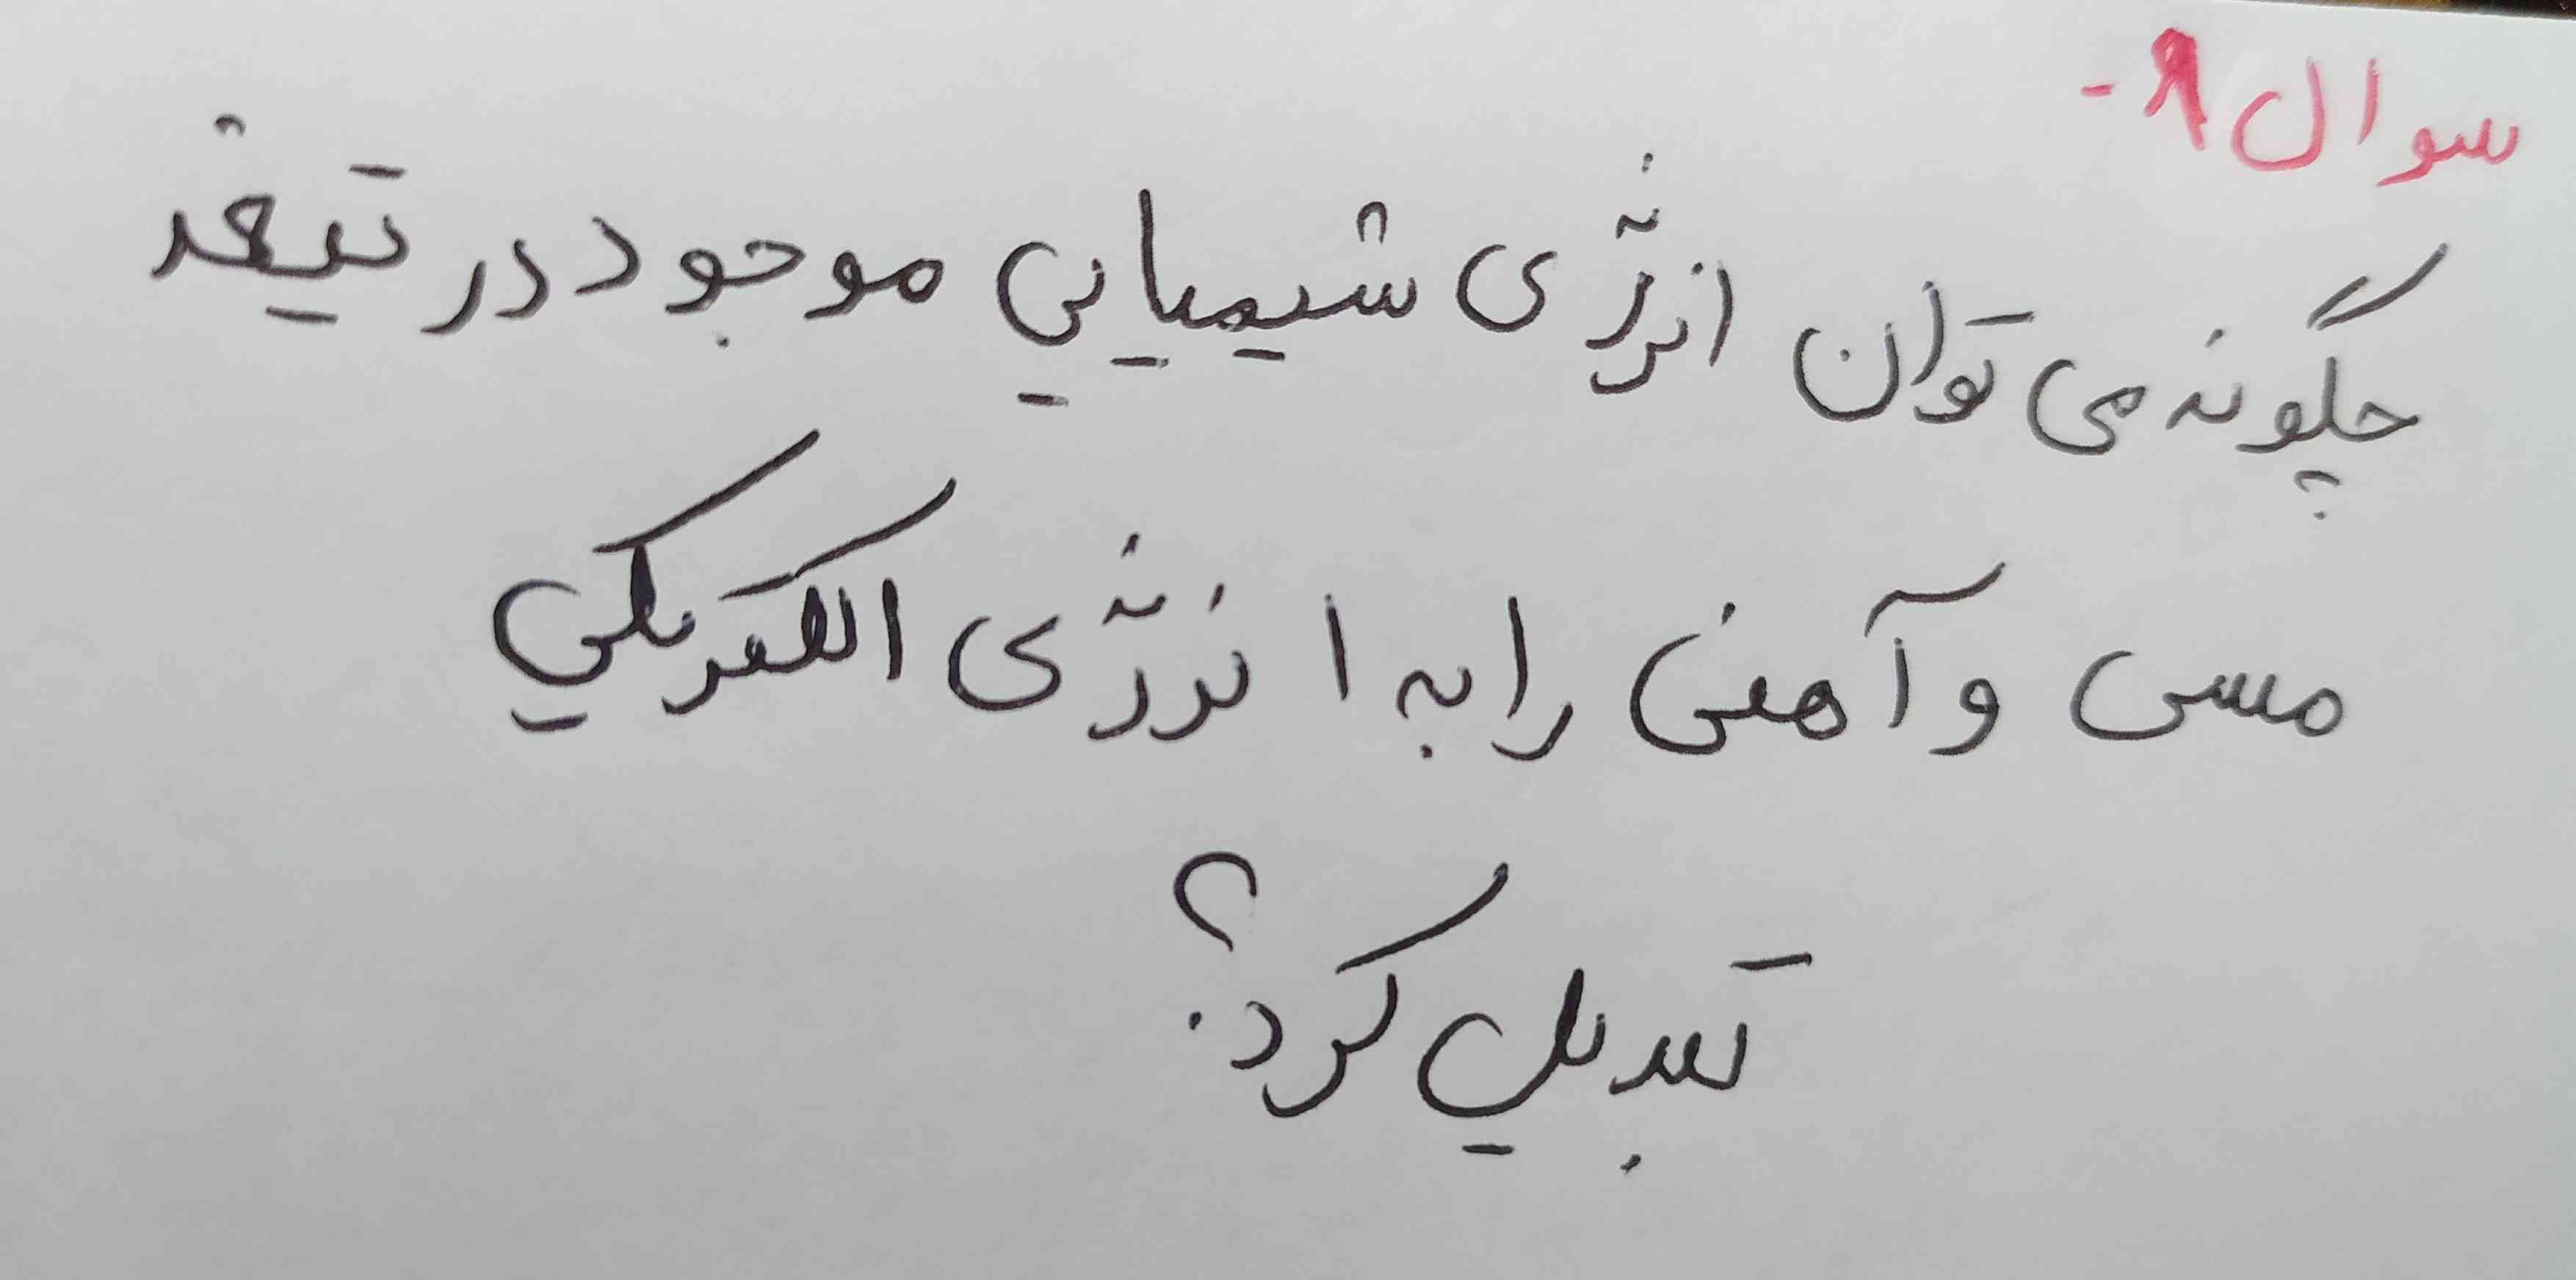 سوال ۹-
چگونه می توان انرژی شیمیایی موجود در تیغه
مسی و آهنی را به انرژی الکتریکی
تبدیل کرد؟